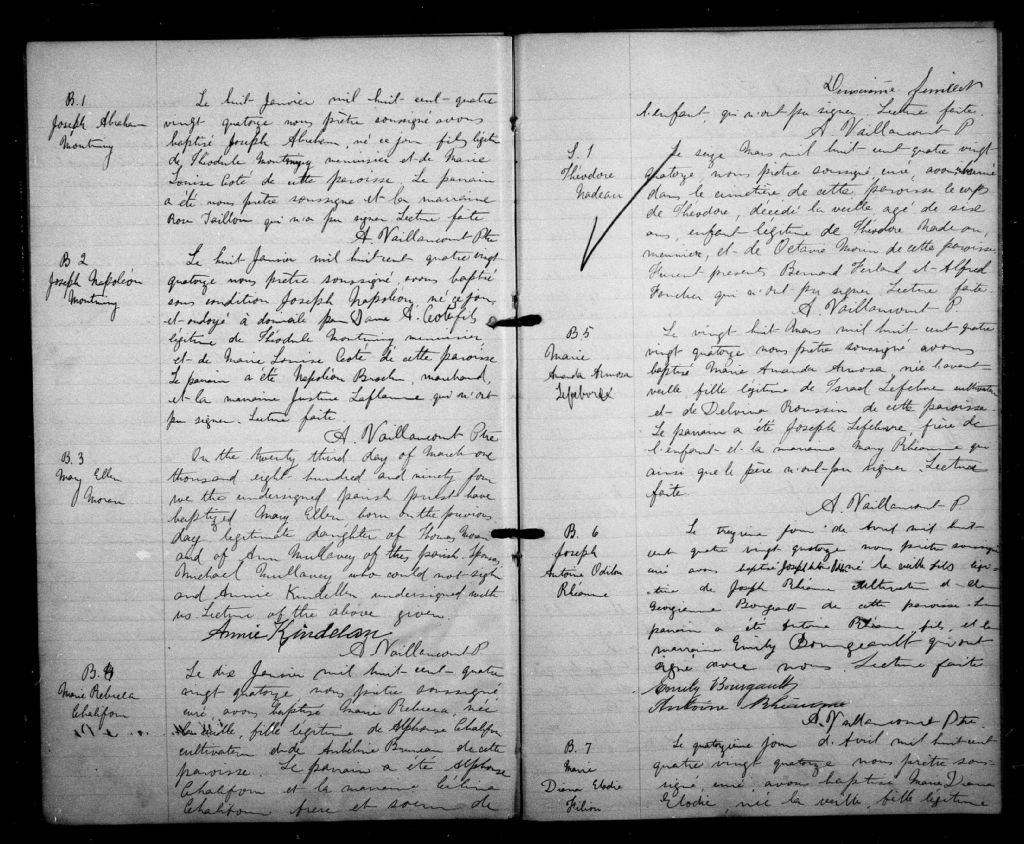 B. 1
Joseph Abraham
Montminy
Le huit Janvier mil huit-cent-quatre
vingt quatorze nous prêtre soussigné avons
baptisé Joseph Abraham, né ce jour fils légitime
de Théodule Montminy menuisier et de Marie
Louise Coté de cette paroisse. Le parrain
a été nous prêtre soussigné et la marraine
Rose Taillon qui n'a pu signer Lecture faite
A. Vaillancourt Ptre
B 2
Joseph Napoléon
Montminy
Le huit Janvier mil huit-cent quatre vingt
quatorze nous prêtre soussigné avons baptisé
sous condition Joseph Napoléon, né ce jour,
et ondoyé à domicile par Dame A. Coté fils
légitime de Théodule Montminy, menuisier,
et de Marie Louise Coté de cette paroisse
Le parrain a été Napoléon marchand,
et la marraine Justine Laflamme qui n'ont
pu signer. Lecture faite.
A. Vaillancourt Ptre
B. 3
Mary Ellen
Moran
On the twenty third day of March one
thousand eight hundred and ninety four
we the undersigned parish priest have
baptized Mary Ellen, born on the previous
day legitimate daughter of Thomas Moran
and of Ann Mullavey of this parish. Sponsors
Michael Mullavey who could not sign
and Annie Kindellen undersigned with
us. Lecture of the above given.
Annie Kindelan
A. Vaillancourt P.
B. 4
Marie Rebecca
Chalifour
Le dix Janvier mil huit-cent-quatre
vingt quatorze, nous prêtre soussigné,
curé, avons baptisé Marie Rebecca, née
la veille, fille légitime de Alphonse Chalifour
cultivateur et de Bruneau de cette
paroisse. Le parrain a été Alphonse
Chalifour et la marraine Célina
Chalifour frère et soeur de
Deuxième feuillet
l'enfant, qui n'ont pu signer. Lecture faite.
A. Vaillancourt P.
S. 1
Théodore
Nadeau
Le seize Mars mil huit cent quatre vingt
quatorze, nous prêtre soussigné curé, avons inhumé
dans le cimetière de cette paroisse le corps
de Théodore, décédé la veille agé de six
ans, enfant légitime de Théodore Nadeau,
meunier, et de Octavie Morin de cette paroisse.
Furent présents Bernard Ferland et Alfred
Foucher qui n'ont pu signer. Lecture faite
A. Vaillancourt P.
B. 5
Marie
Amanda Arnosa
Lefebvre
Le vingt huit Mars mil huit cent quatre
vingt quatorze nous prêtre soussigné avons
baptisé Marie Amanda Arnosa, née l'avant-
veille, fille légitime de Israel Lefebvre cultivateur
et de Delvina Roussin de cette paroisse.
Le parrain a été Joseph Lefebvre, frère de
l'enfant et la marraine Mary Rhéaume qui
ainsi que le père n'ont pu signer. Lecture
faite.
A. Vaillancourt P.
B. 6
Joseph
Antoine Odilon
Rhéaume
Le treizième jour de Avril mil huit
cent quatre vingt quatorze nous prêtre soussigné
curé avons baptisé né la veille fils légi-
time de Joseph Rhéaume cultivateur et de
Georgienne Bourgault de cette paroisse. Le
parrain a été Antoine Rhéaume, fils, et la
marraine Emily Bourgeault qui ont
signé avec nous Lecture faite
Emily Bourgault
Antoine Rhéaume
A. Vaillancourt Ptre.
B. 7
Marie
Diana Elodie
Filion
Le quatorzième jour d'Avril mil huit-cent
quatre vingt quatorze nous prêtre sous-
signé, curé, avons baptisé Marie Diana
Elodie, née la veille, fille légitime